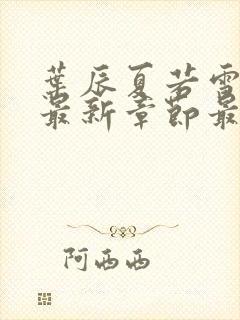 葉辰夏若雪
最新章節最
阿西西